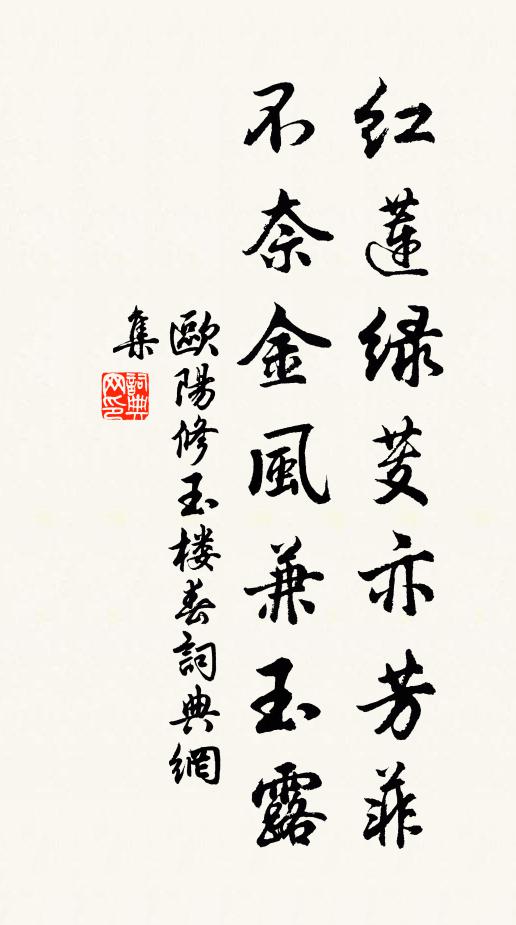 紅蓮緑芰亦芳菲
不奈金風兼玉露
歐陽修玉楼春詞典網
集
詞典
网印